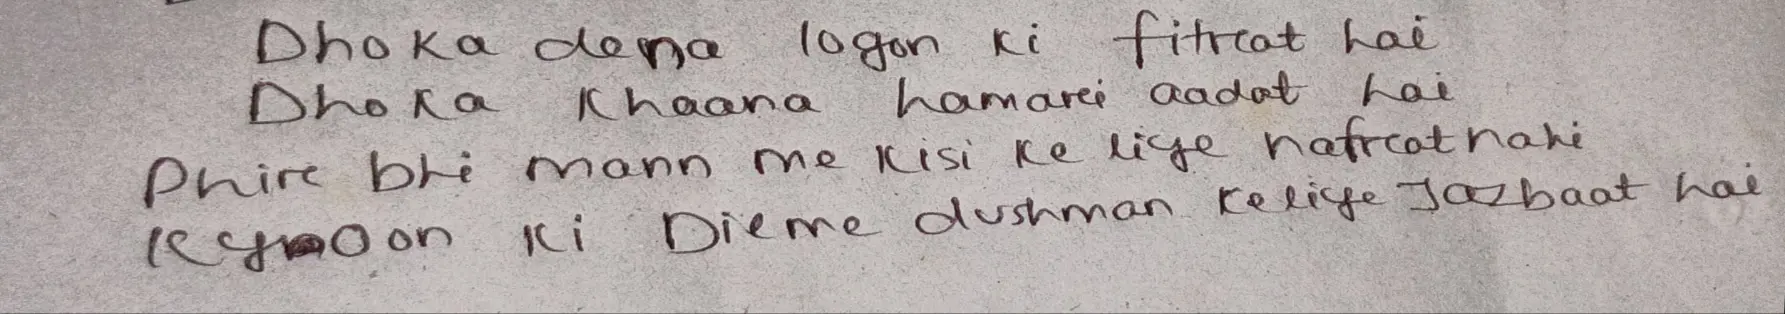 Dhoka dena logon ki fitrat hai
Dhoka Khaana hamari aadat hai
Phir bhi mann me kisi ke liye nafrat nahi
Kyoon ki Dil me dushman ke liye Jazbaat hai